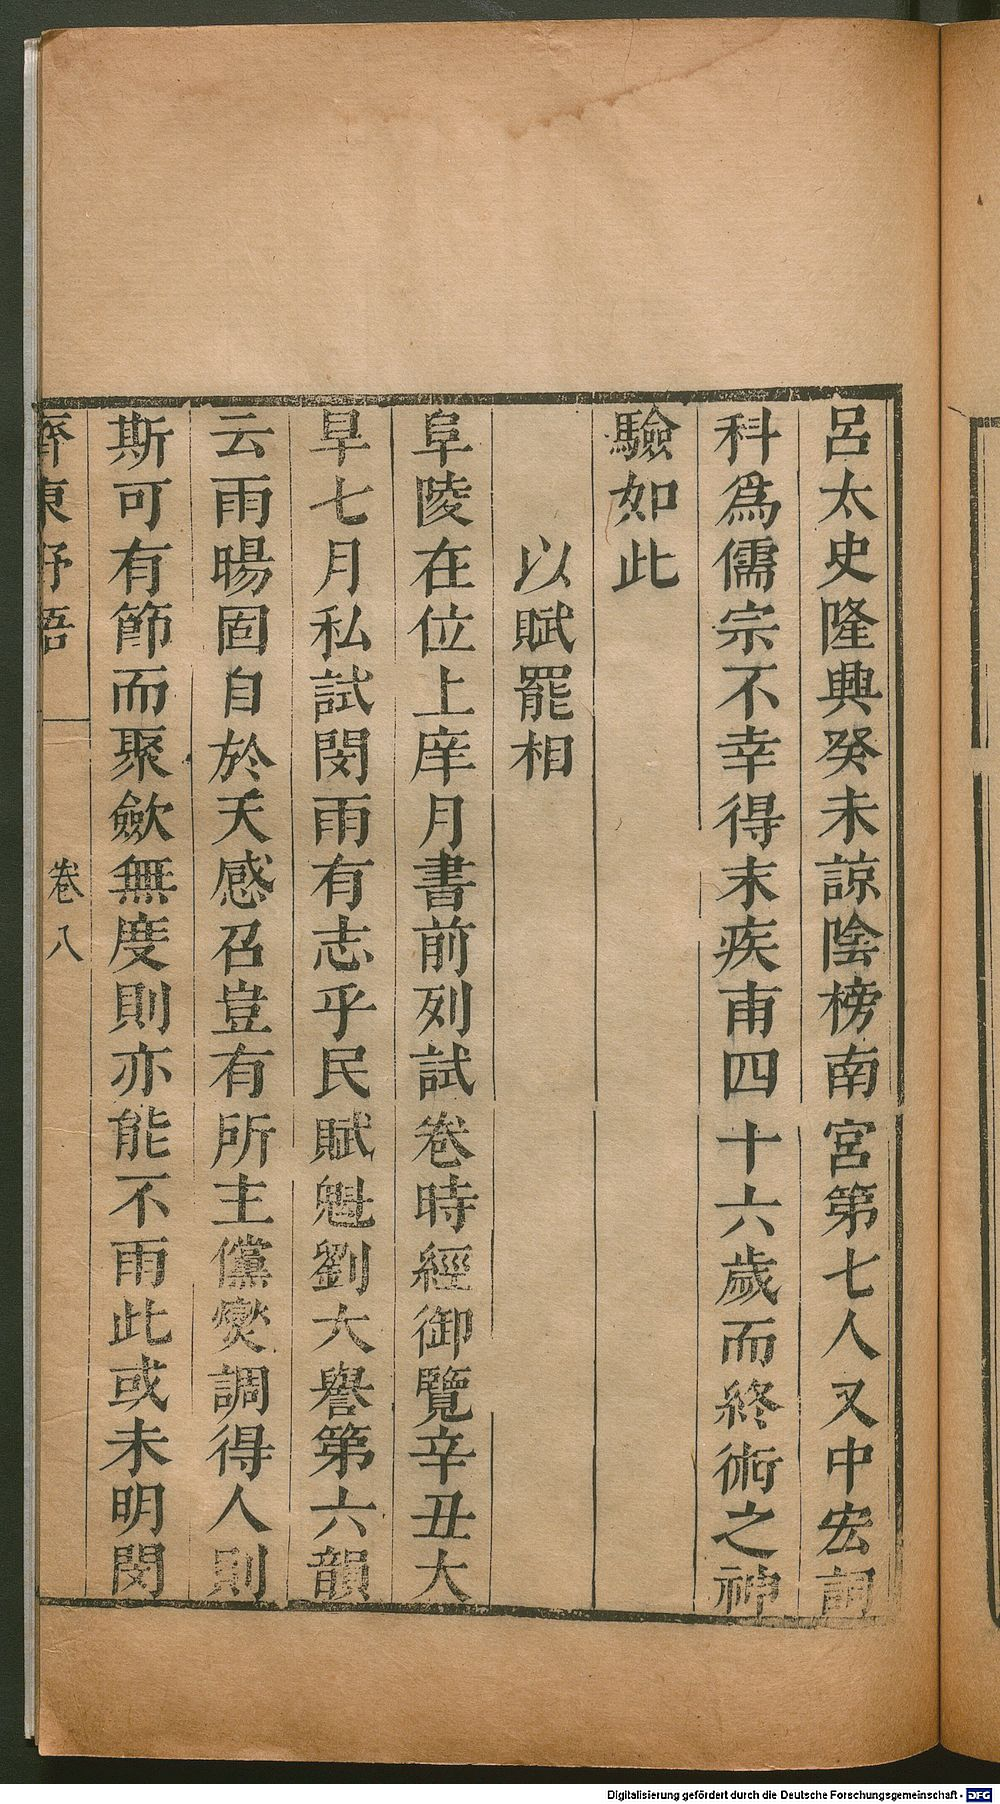 呂太史隆興癸未諒陰榜南宮第七人又中宏詞
科爲儒宗不幸得末疾甫四十六歲而終術之神
驗如此
以賦罷相
阜陵在位上庠月書前列試卷時經御覽辛丑大
旱七月私試閔雨有志乎民賦魁劉大譽第六韻
云雨暘固自於天感召豈有所主儻燮調得人則
斯可有節而聚斂無度則亦能不雨此或未明閔
齊東野語
卷八
Digitalisierung gefördert durch die Deutsche Forschungsgemeinschaft - DFG